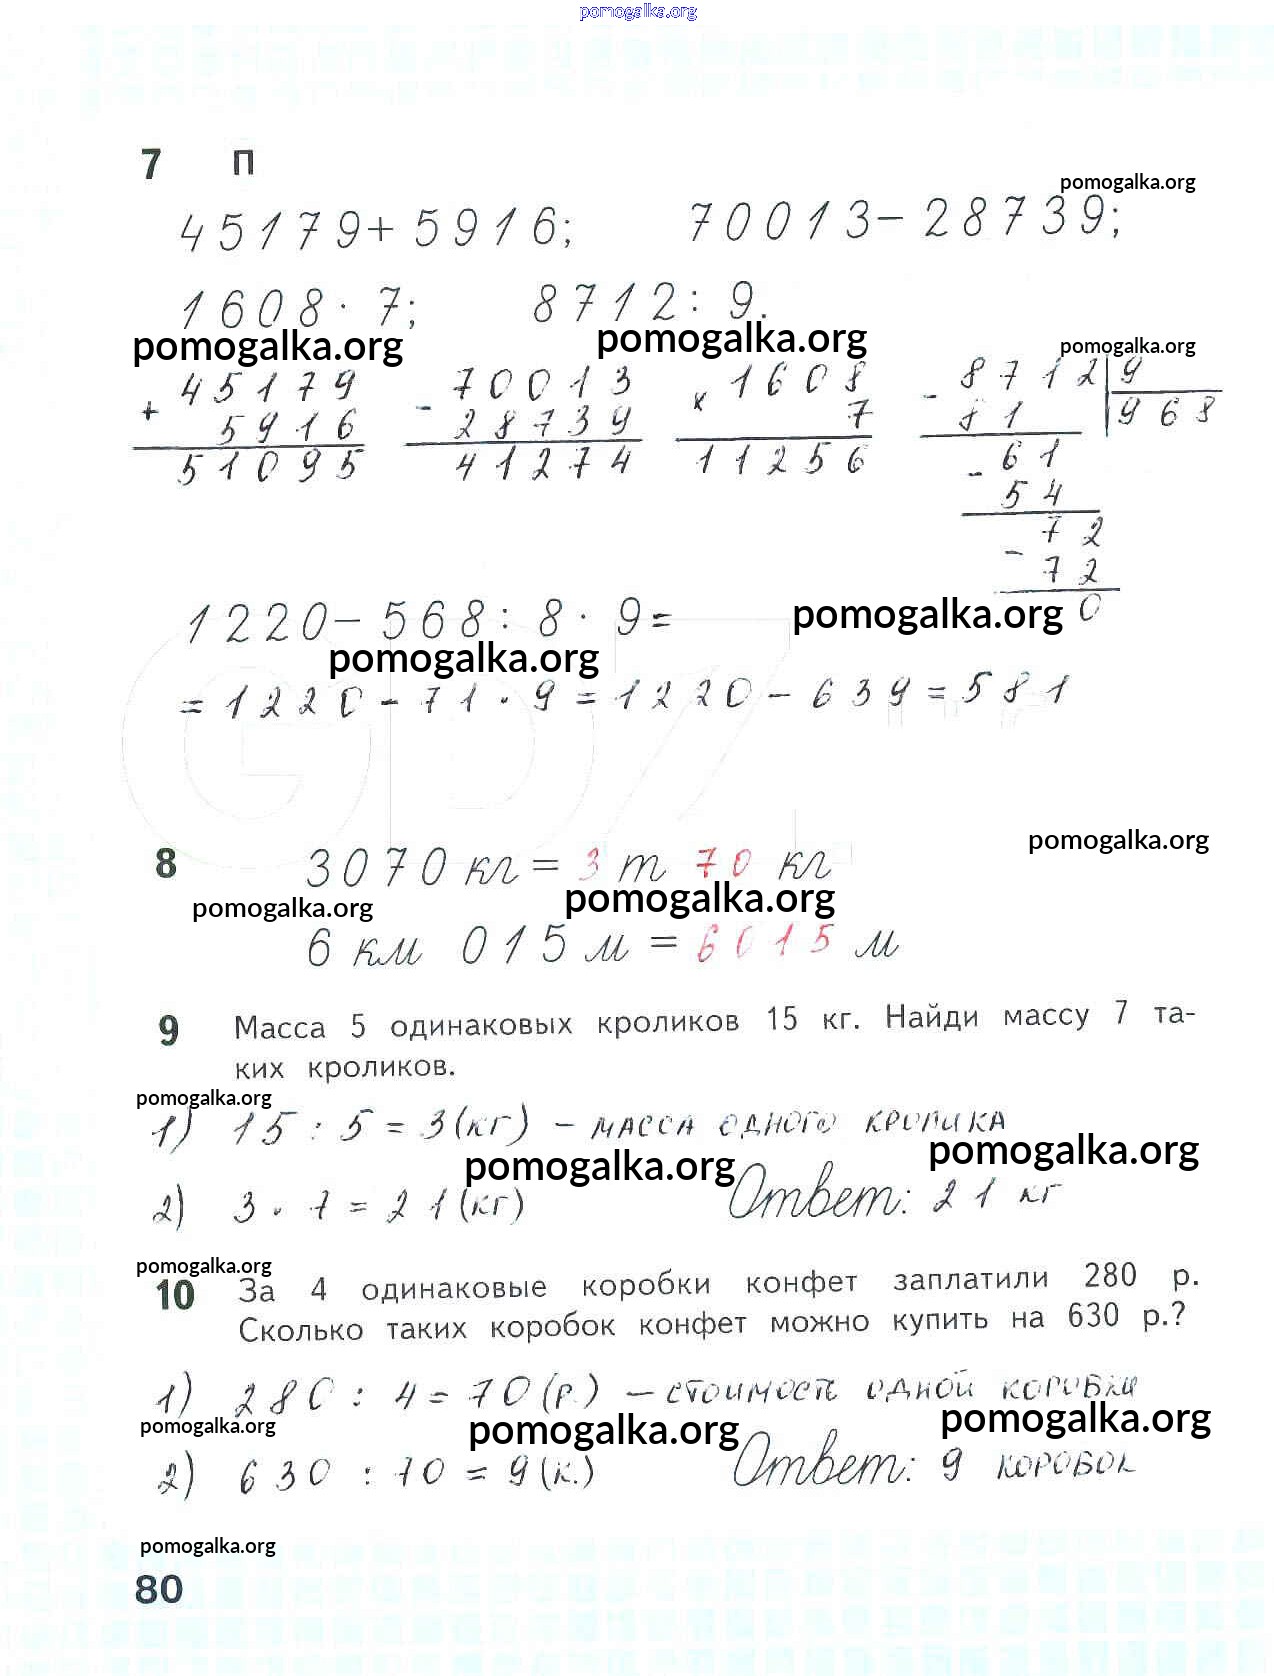 pomogalka.org
7 П
pomogalka.org
45179+5916; 70013-28739;
1608· 7; 8712: 9.
pomogalka.org pomogalka.org pomogalka.org
+ 45179 - 70013 × 1608 - 8712 | 9
5916 28739 7 81 968
51095 41274 11256 - 61
54
- 72
72
0
1220-568: 8· 9=
pomogalka.org
pomogalka.org
=1220-71·9=1220-639=581
pomogalka.org
8 3070 кг= 3 т 70 кг
pomogalka.org pomogalka.org
6 км 015 м = 6015 м
9 Масса 5 одинаковых кроликов 15 кг. Найди массу 7 та-
ких кроликов.
pomogalka.org
1) 15 : 5 = 3(кг) – масса одного кролика
pomogalka.org pomogalka.org
2) 3 · 7 = 21(кг) Ответ: 21 кг
pomogalka.org
10 За 4 одинаковые коробки конфет заплатили 280 р.
Сколько таких коробок конфет можно купить на 630 р.?
1) 280 : 4 = 70(р.) – стоимость одной коробки
pomogalka.org pomogalka.org pomogalka.org
2) 630 : 70 = 9(к.) Ответ: 9 коробок
pomogalka.org
80
GDZ